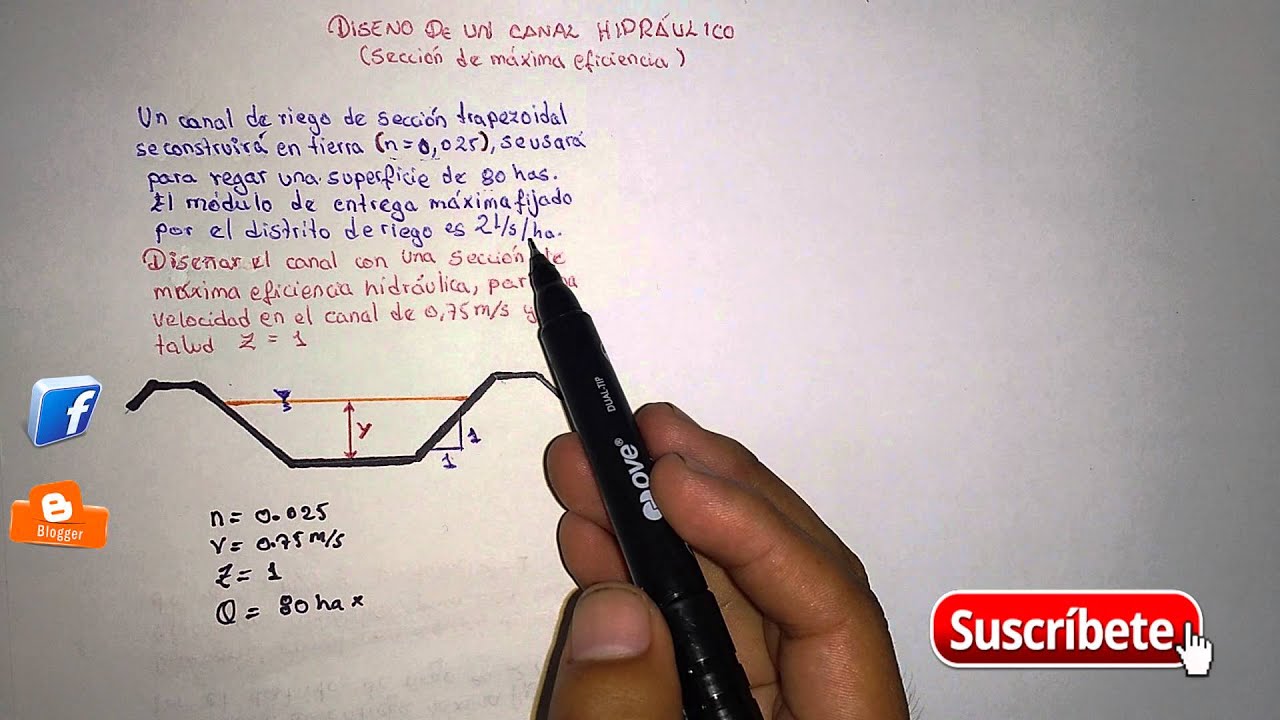 DISENO DE UN CANAL HIDRÁULICO
(Sección de máxima eficiencia)
Un canal de riego de sección trapezoidal
se construirá en tierra (n=0,025), se usará
para regar una superficie de 80 has.
El módulo de entrega máxima fijado
por el distrito de riego es 2 l/s/ha.
Diseñar el canal con una sección de
máxima eficiencia hidráulica, par
velocidad en el canal de 0,75 m/s y
talud Z = 1
Y
1
1
n = 0.025
v = 0.75 m/s
Z = 1
Q = 80 ha x
f
Blogger
DUAL-TIP
ove
Suscríbete